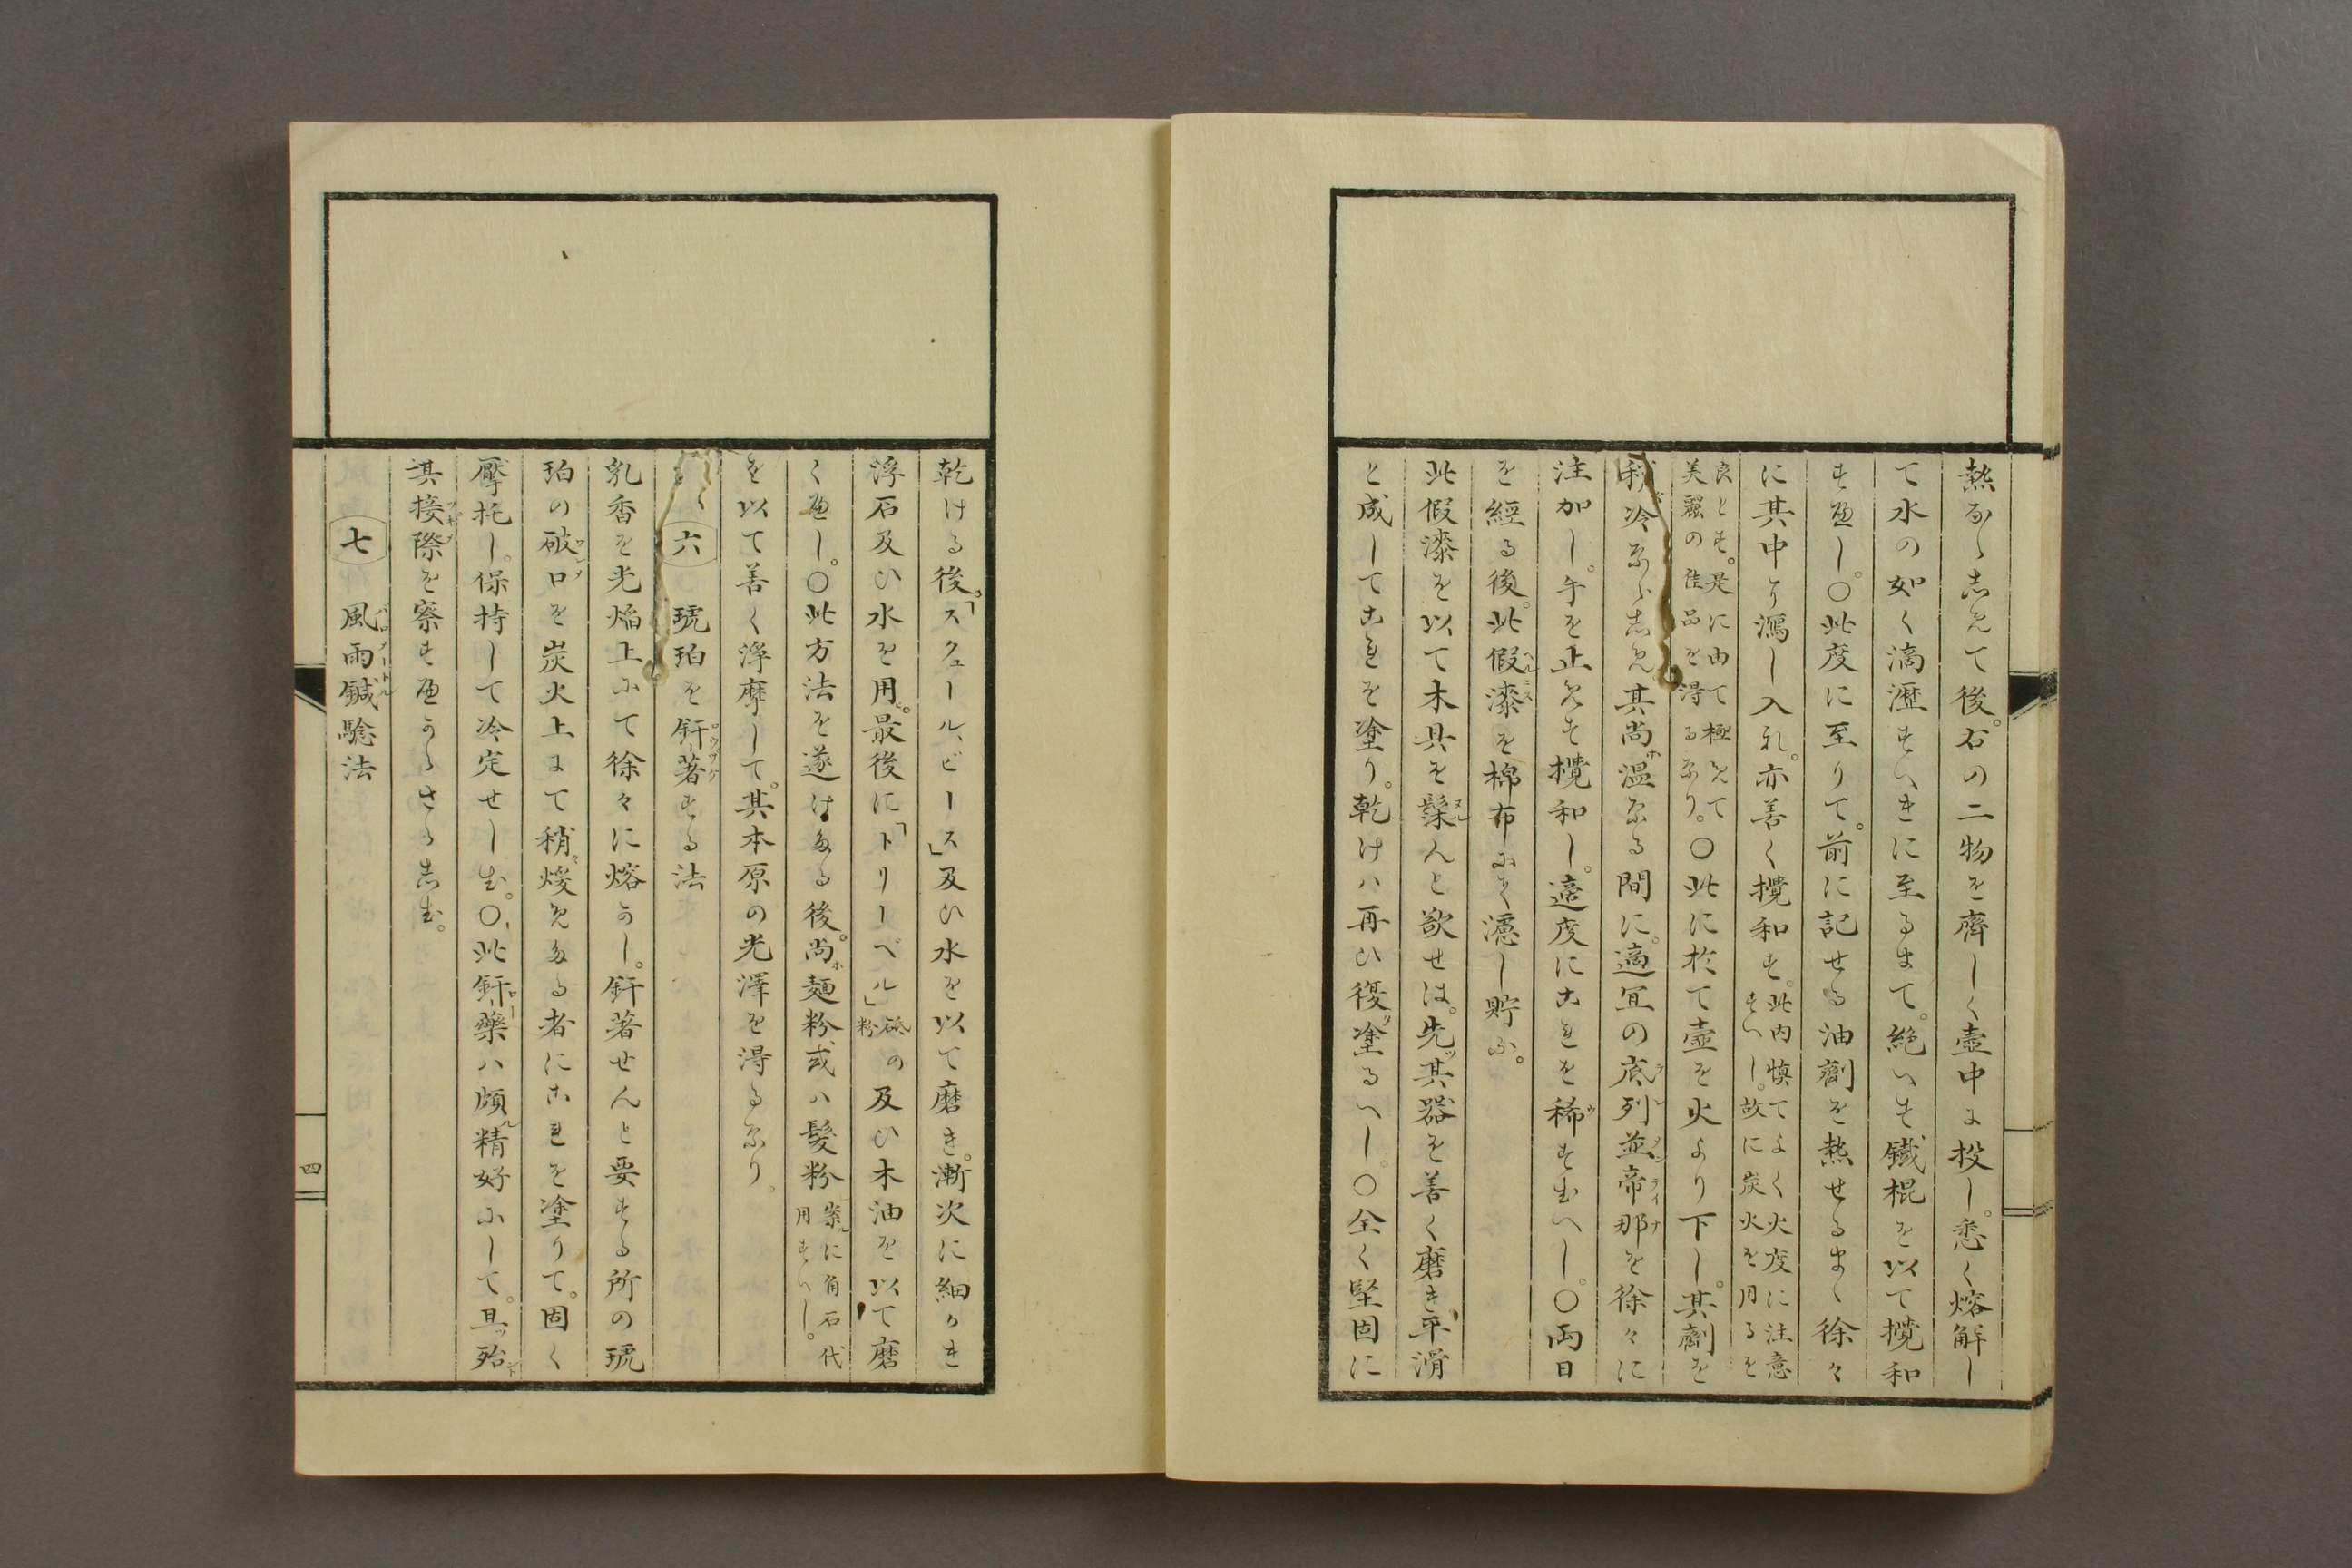 熱ならしめて後。右の二物を齊しく壷中に投し。悉く熔解し
て水の如く滴瀝すへきに至るまて。絶へす鐵棍を以て攪和
すべし。〇此度に至りて。前に記せる油劑を熱せるまゝ徐々
に其中に瀉し入れ。亦善く攪和す。此内慎てよく火度に注意すへし。故に炭火を用るを
良とす。是に由て極めて美麗の佳品を得るなり。〇此に於て壷を火より下し。其劑を
冷ならしめ其尚温なる間に。適宜の底列並帝那を徐々に
注加し。手を止めす攪和し。適度にこれを稀すむへし。〇両日
を經る後。此假漆を棉布にて濾し貯ふ。
此假漆を以て木具を髹んと欲せは。先其器を善く磨き平滑
と成してこれを塗り。乾けハ再ひ復塗るへし。〇全く堅固に
乾ける後。「スクュール、ビース」及ひ水を以て磨き。漸次に細かき
浮石及ひ水を用。最後に「トリーペル」砥の粉及ひ木油を以て磨
くべし。〇此方法を遂けたる後。尚麺粉或ハ髪粉柴に角石代用すへし。
を以て善く浄摩して。其本原の光澤を得るなり。
六 琥珀を釬著する法
乳香を光焔上にて徐々に熔かし。釬著せんと要する所の琥
珀の破口を炭火上にて稍煖めたる者にこれを塗りて。固く
壓托し。保持して冷定せしむ。〇此釬藥ハ頗精好にして。且殆
其接際を察すべからさらしむ。
七 風雨鍼驗法
四